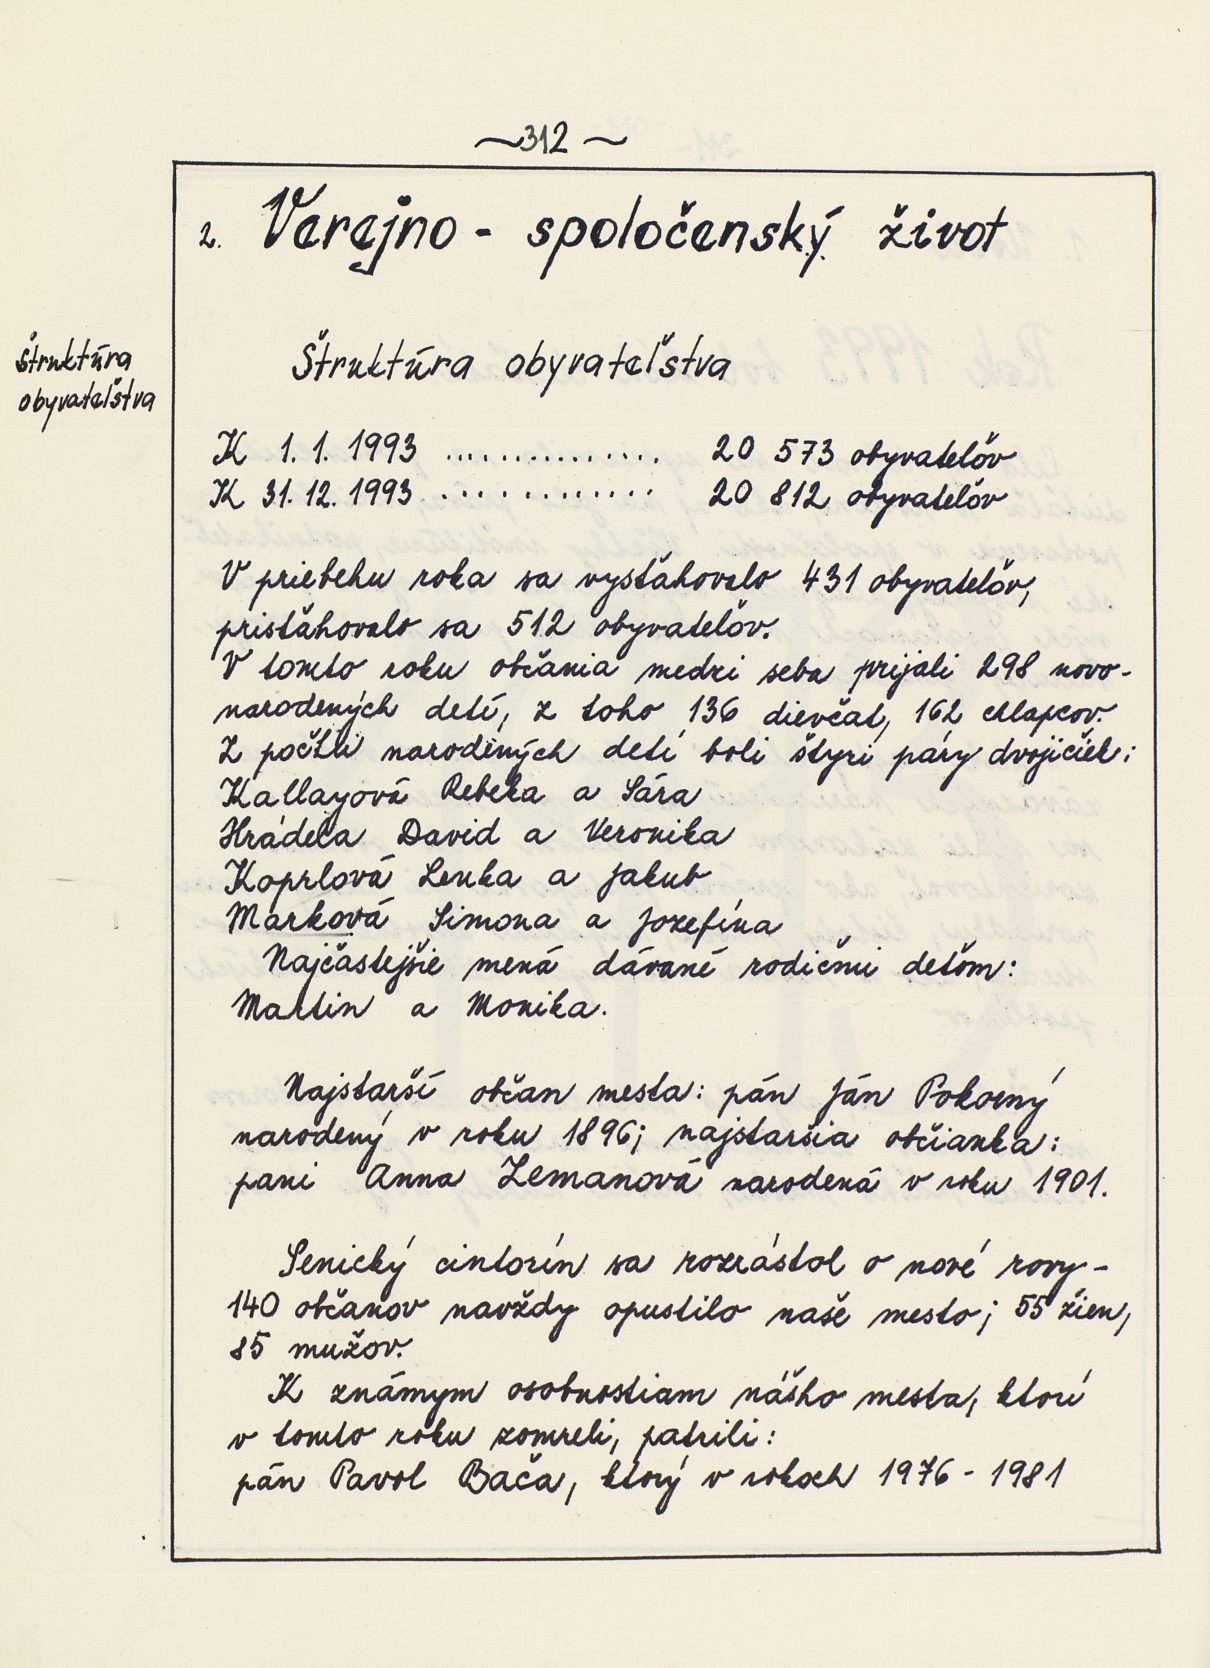 ~312~
2. Verejno - spoločenský život
Štruktúra
obyvateľstva
Štruktúra obyvateľstva
K 1. 1. 1993 ............... 20 573 obyvateľov
K 31. 12. 1993 ............. 20 812 obyvateľov
V priebehu roka sa vysťahovalo 431 obyvateľov,
prisťahovalo sa 512 obyvateľov.
V tomto roku občania medzi seba prijali 298 novo-
narodených detí, z toho 136 dievčat, 162 chlapcov.
Z počtu narodených detí boli štyri páry dvojičiek:
Kallayová Rebeka a Sára
Hrádela David a Veronika
Koprlová Lenka a Jakub
Marková Simona a Jozefína
Najčastejšie mená dávané rodičmi deťom:
Martin a Monika.
Najstarší občan mesta: pán Ján Pokorný
narodený v roku 1896; najstaršia občianka:
pani Anna Zemanová narodená v roku 1901.
Senický cintorín sa rozrástol o nové rovy -
140 občanov navždy opustilo naše mesto; 55 žien,
85 mužov.
K známym osobnostiam nášho mesta, ktorí
v tomto roku zomreli, patrili:
pán Pavol Bača, ktorý v rokoch 1976 - 1981